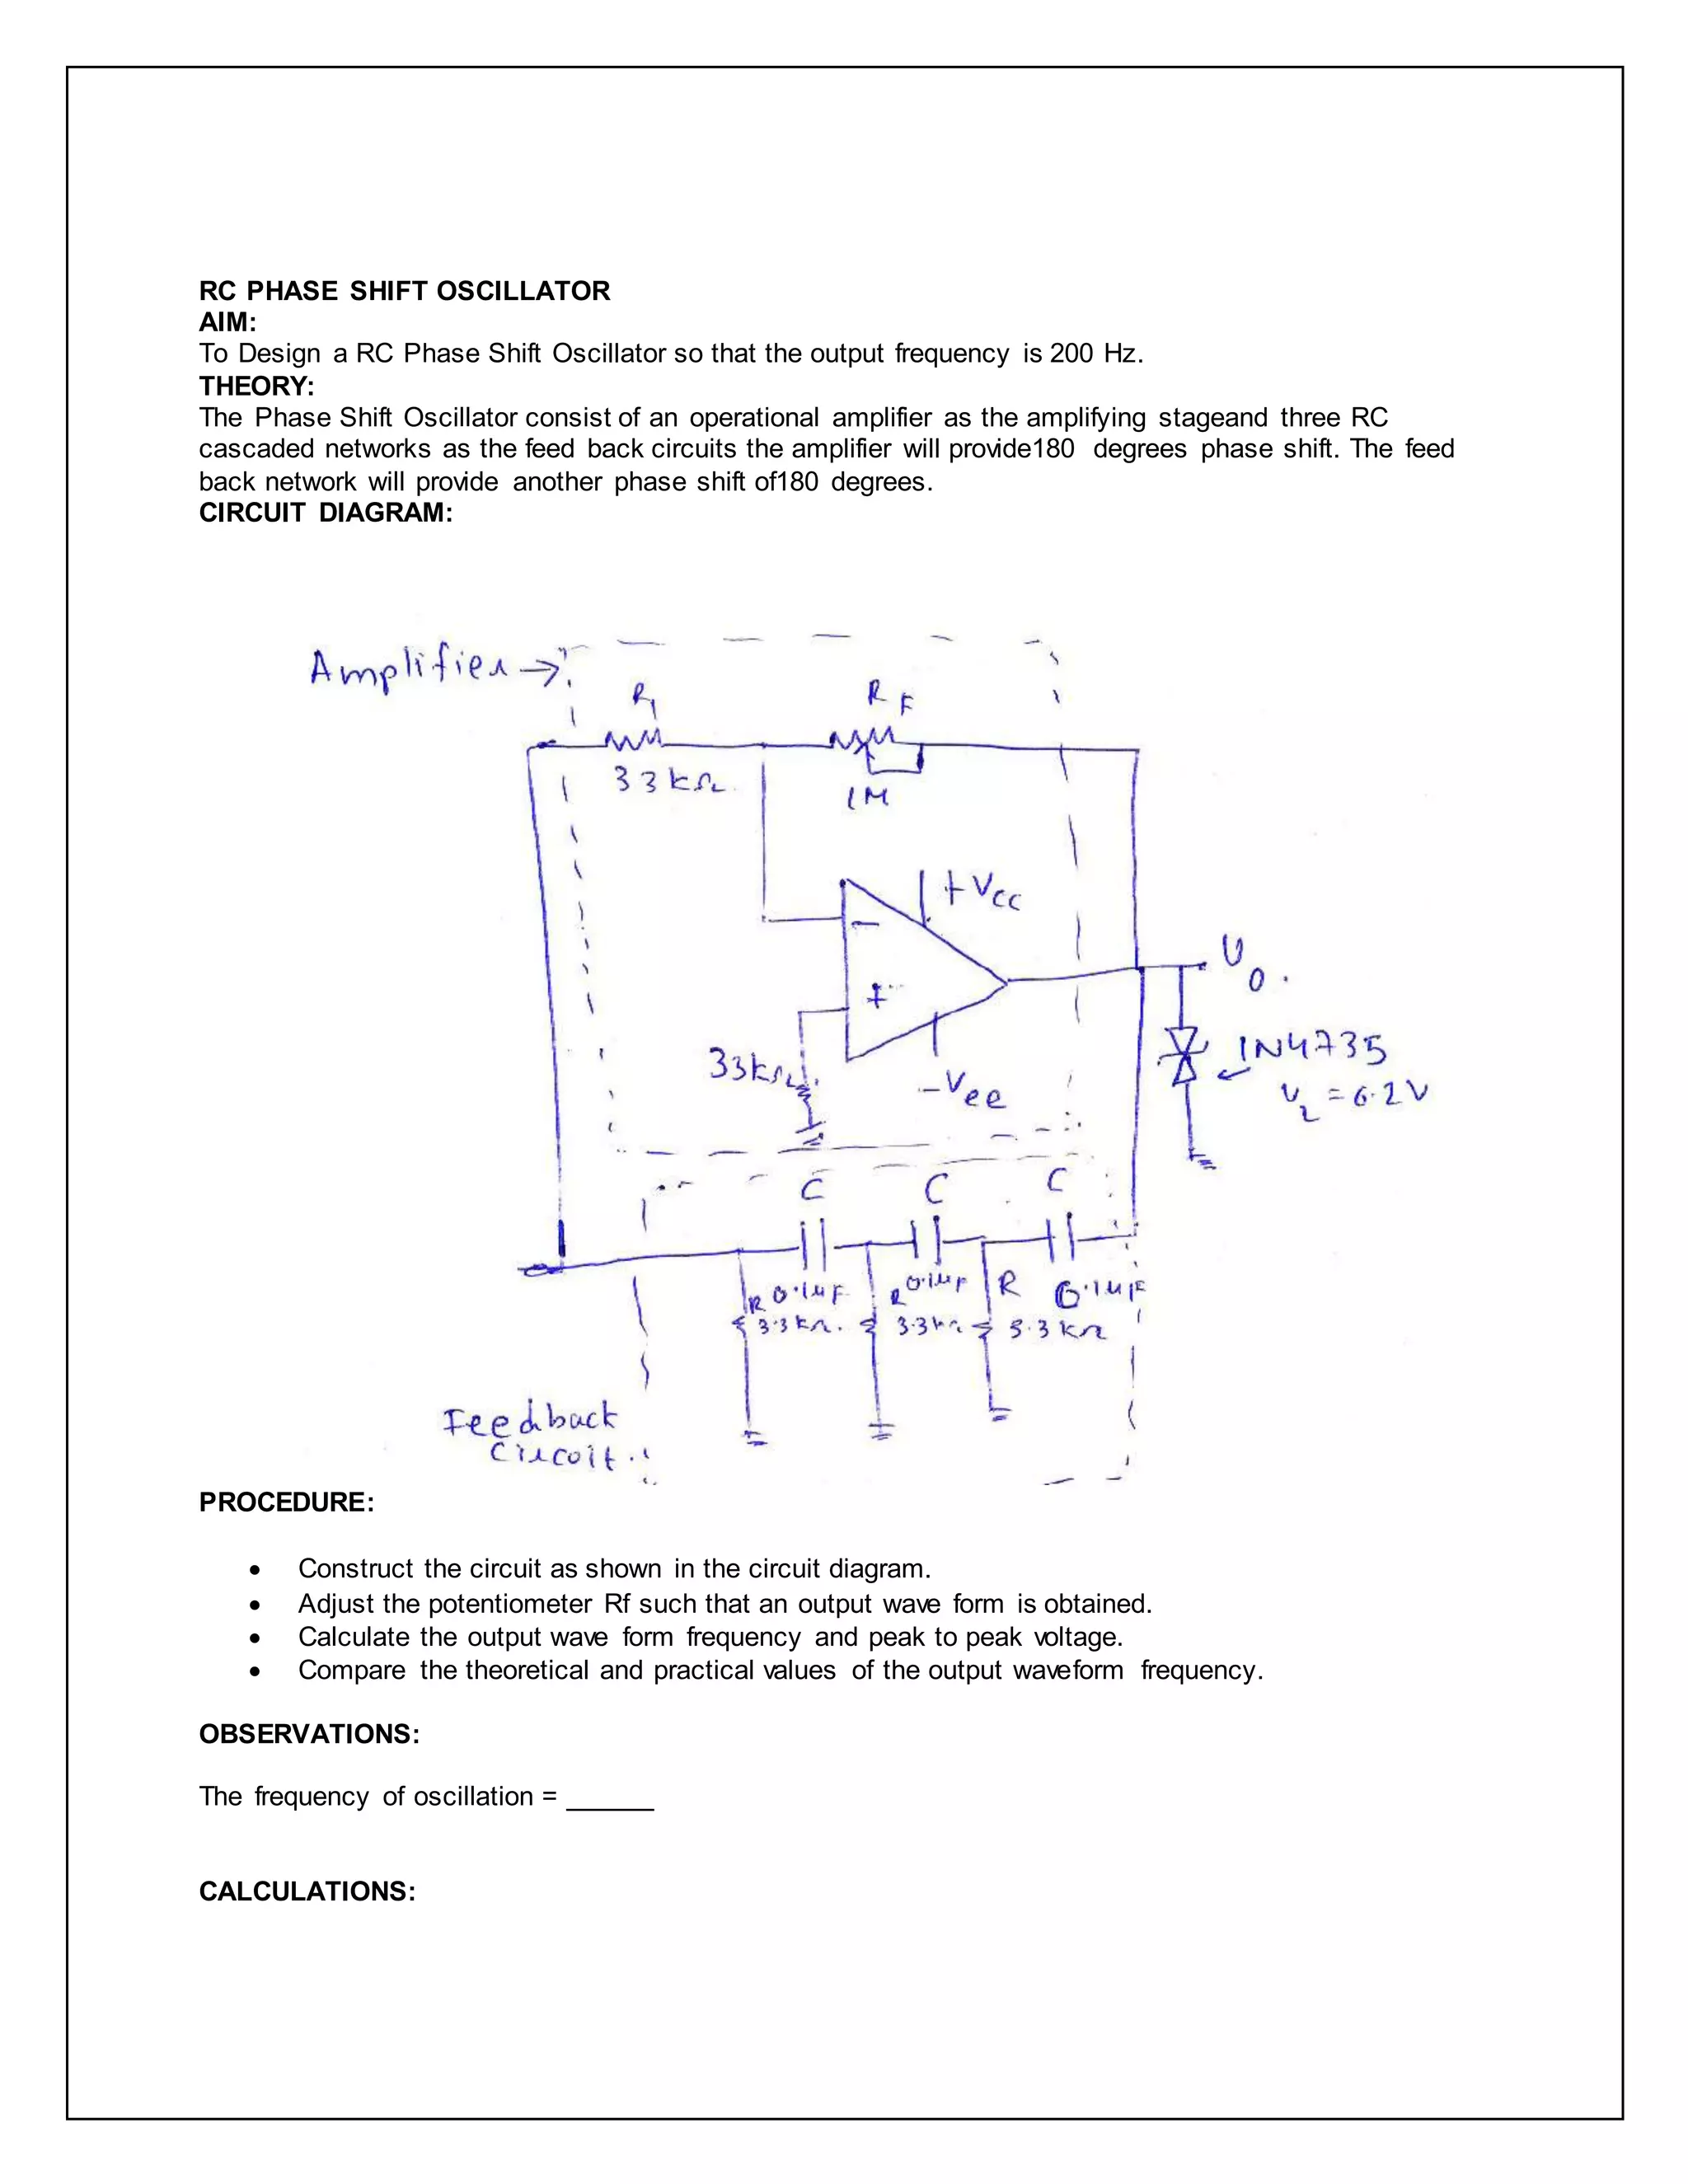 RC PHASE SHIFT OSCILLATOR
AIM:
To Design a RC Phase Shift Oscillator so that the output frequency is 200 Hz.
THEORY:
The Phase Shift Oscillator consist of an operational amplifier as the amplifying stageand three RC
cascaded networks as the feed back circuits the amplifier will provide180 degrees phase shift. The feed
back network will provide another phase shift of180 degrees.
CIRCUIT DIAGRAM:
Amplifier →
R1
RF
33kΩ
1M
+Vcc
−
+
Vo.
33kΩ
-Vee
1N4735
Vz = 6.2V
C
C
C
R 0.1μF
R 0.1μF
R 0.1μF
3.3kΩ.
3.3kΩ
3.3kΩ
Feedback
Circuit
PROCEDURE:
• Construct the circuit as shown in the circuit diagram.
• Adjust the potentiometer Rf such that an output wave form is obtained.
• Calculate the output wave form frequency and peak to peak voltage.
• Compare the theoretical and practical values of the output waveform frequency.
OBSERVATIONS:
The frequency of oscillation = ______
CALCULATIONS: